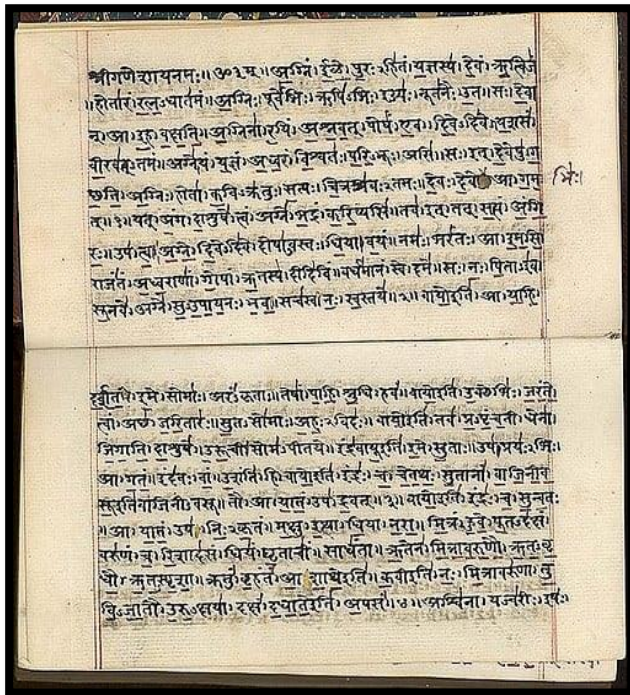 श्रीगणेशायनमः॥ ॐ३म्॥ अ॒ग्निं। ई॒ळे॒। पु॒रःऽहि॑तं। य॒ज्ञस्य॑। दे॒वं। ऋ॒त्विजं॑
।होता॑रं। र॒त्न॒ऽधात॑मं। अ॒ग्निः। पूर्वे॑भिः। ऋषि॑ऽभिः। ईड्यः॑। नूत॑नैः। उ॒त। सः। दे॒वा
न्। आ। इ॒ह। व॒क्ष॒ति॒। अ॒ग्निना॑। र॒यिं। अ॒श्न॒व॒त्। पोषं॑। ए॒व। दि॒वेऽदि॑वे। य॒शसं॑
वी॒रव॑त्ऽतमं। अग्ने॑। यं। य॒ज्ञं। अ॒ध्व॒रं। वि॒श्वतः॑। प॒रि॒ऽभूः। असि॑। सः। इत्। दे॒वेषु॑। ग॒
च्छ॒ति॒। अ॒ग्निः। होता॑। क॒विऽक्र॑तुः। स॒त्यः। चि॒त्रश्र॑वःऽतमः। दे॒वः। दे॒वे आ। ग॒म॒ भिः॑।
त्॥१॥ यत्। अं॒ग। दा॒शुषे॑। त्वं। अग्ने॑। भ॒द्रं। क॒रि॒ष्यसि॑। तव॑। इत्। तत्। स॒त्यं। अं॒गि॒
रः॒॥ उप॑। त्वा॒। अ॒ग्ने॒। दि॒वेऽदि॑वे। दोषा॑ऽवस्तः। धि॒या। व॒यं। नमः॑। भरं॑तः। आ। इ॒म॒सि॒
राजं॑तं। अ॒ध्व॒राणां॑। गो॒पां। ऋ॒तस्य॑। दीदि॑विं। वर्ध॑मानं। स्वे। दमे॑॥ सः। नः॒। पि॒ताऽइ॑व
सू॒नवे॑। अग्ने॑। सु॒ऽउ॒पा॒य॒नः। भ॒व॒। सच॑स्व। नः॒। स्व॒स्तये॑॥२॥ वायो॒इति॑। आ। या॒हि॒।
द॒र्श॒त॒। इ॒मे। सोमाः॑। अरं॑ऽकृताः॥ तेषां॑। पा॒हि॒। श्रु॒धि। हवं॑॥ वायो॒इति॑। उ॒क्थेभिः॑। ज॒रं॒ते॒
त्वां। अच्छ॑। ज॒रि॒तारः॑॥ सु॒तऽसो॑माः। अ॒हः॒ऽविदः॑॥ वायो॒इति॑। तव॑। प्र॒ऽपृं॒च॒ती। धेना॑
जि॒गा॒ति॒। दा॒शुषे॑॥ उ॒रू॒ची। सोम॑ऽपीतये॥ इंद्र॑वायू॒इति॑। इ॒मे। सु॒ताः। उप॑। प्रयः॑ऽभिः।
आ। ग॒तं॒॥ इंद॑वः। वां॒। उ॒शंति॑। हि। वायो॒इति॑। इंद्रः॑। च॒। चे॒त॒थः॒। सु॒तानां॑। वा॒जि॒नी॒व॒
सू॒इति॑वाजिनीवसू॥ तौ। आ। या॒तं॒। उप॑। द्र॒वत्॥३॥ वायो॒इति॑। इंद्रः॑। च॒। सु॒न्व॒तः
॥आ। या॒तं॒। उप॑। निः॒ऽकृ॒तं॥ म॒क्षु। इ॒त्था। धि॒या। न॒रा॒॥ मि॒त्रं। हु॒वे॒। पू॒तऽद॑क्षं
वरु॑णं। च॒। रि॒शाद॑सं। धियं॑। घृ॒ताचीं॑॥ साधं॑ता॥ ऋ॒तेन॑। मि॒त्रा॒व॒रु॒णौ॒। ऋ॒त॒ऽवृ॒
धौ॒। ऋ॒त॒ऽस्पृ॒शा॒॥ क्रतुं॑। बृ॒हंतं॑। आ॒शा॒थे॒इति॑॥ क॒वीइति॑। नः॒। मि॒त्रावरु॑णा। तु॒
वि॒ऽजा॒तौ। उ॒रु॒ऽक्षया॑॥ दक्षं॑। द॒धा॒ते॒इति॑। अ॒पसं॑॥४॥ अश्वि॑ना। यज्व॑रीः। इषः॑।